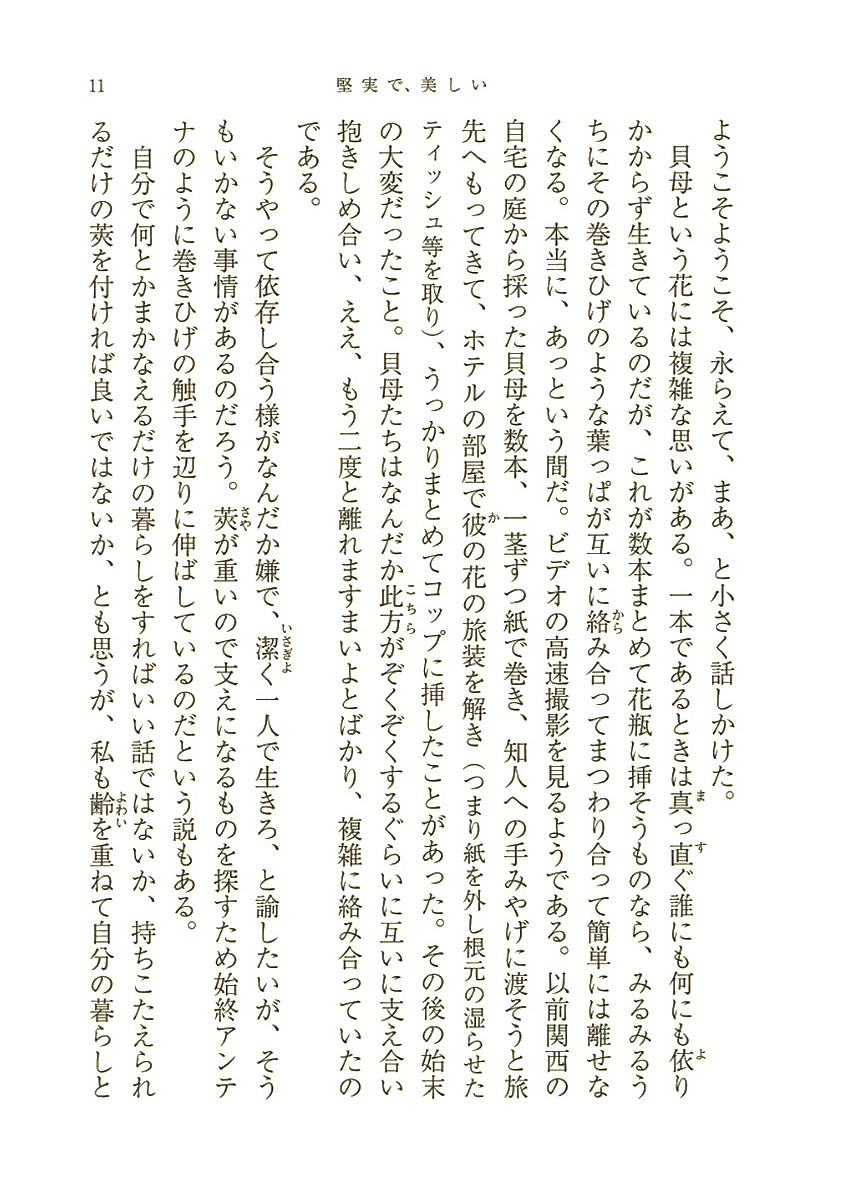 11
堅実で、美しい
ようこそようこそ、永らえて、まあ、と小さく話しかけた。
貝母という花には複雑な思いがある。一本であるときは真っ直ぐ誰にも何にも依り
かからず生きているのだが、これが数本まとめて花瓶に挿そうものなら、みるみるう
ちにその巻きひげのような葉っぱが互いに絡み合ってまつわり合って簡単には離せな
くなる。本当に、あっという間だ。ビデオの高速撮影を見るようである。以前関西の
自宅の庭から採った貝母を数本、一茎ずつ紙で巻き、知人への手みやげに渡そうと旅
先へもってきて、ホテルの部屋で彼の花の旅装を解き（つまり紙を外し根元の湿らせた
ティッシュ等を取り）、うっかりまとめてコップに挿したことがあった。その後の始末
の大変だったこと。貝母たちはなんだか此方がぞくぞくするぐらいに互いに支え合い
抱きしめ合い、ええ、もう二度と離れますまいよとばかり、複雑に絡み合っていたの
である。
そうやって依存し合う様がなんだか嫌で、潔く一人で生きろ、と諭したいが、そう
もいかない事情があるのだろう。莢が重いので支えになるものを探すため始終アンテ
ナのように巻きひげの触手を辺りに伸ばしているのだという説もある。
自分で何とかまかなえるだけの暮らしをすればいい話ではないか、持ちこたえられ
るだけの莢を付ければ良いではないか、とも思うが、私も齢を重ねて自分の暮らしと